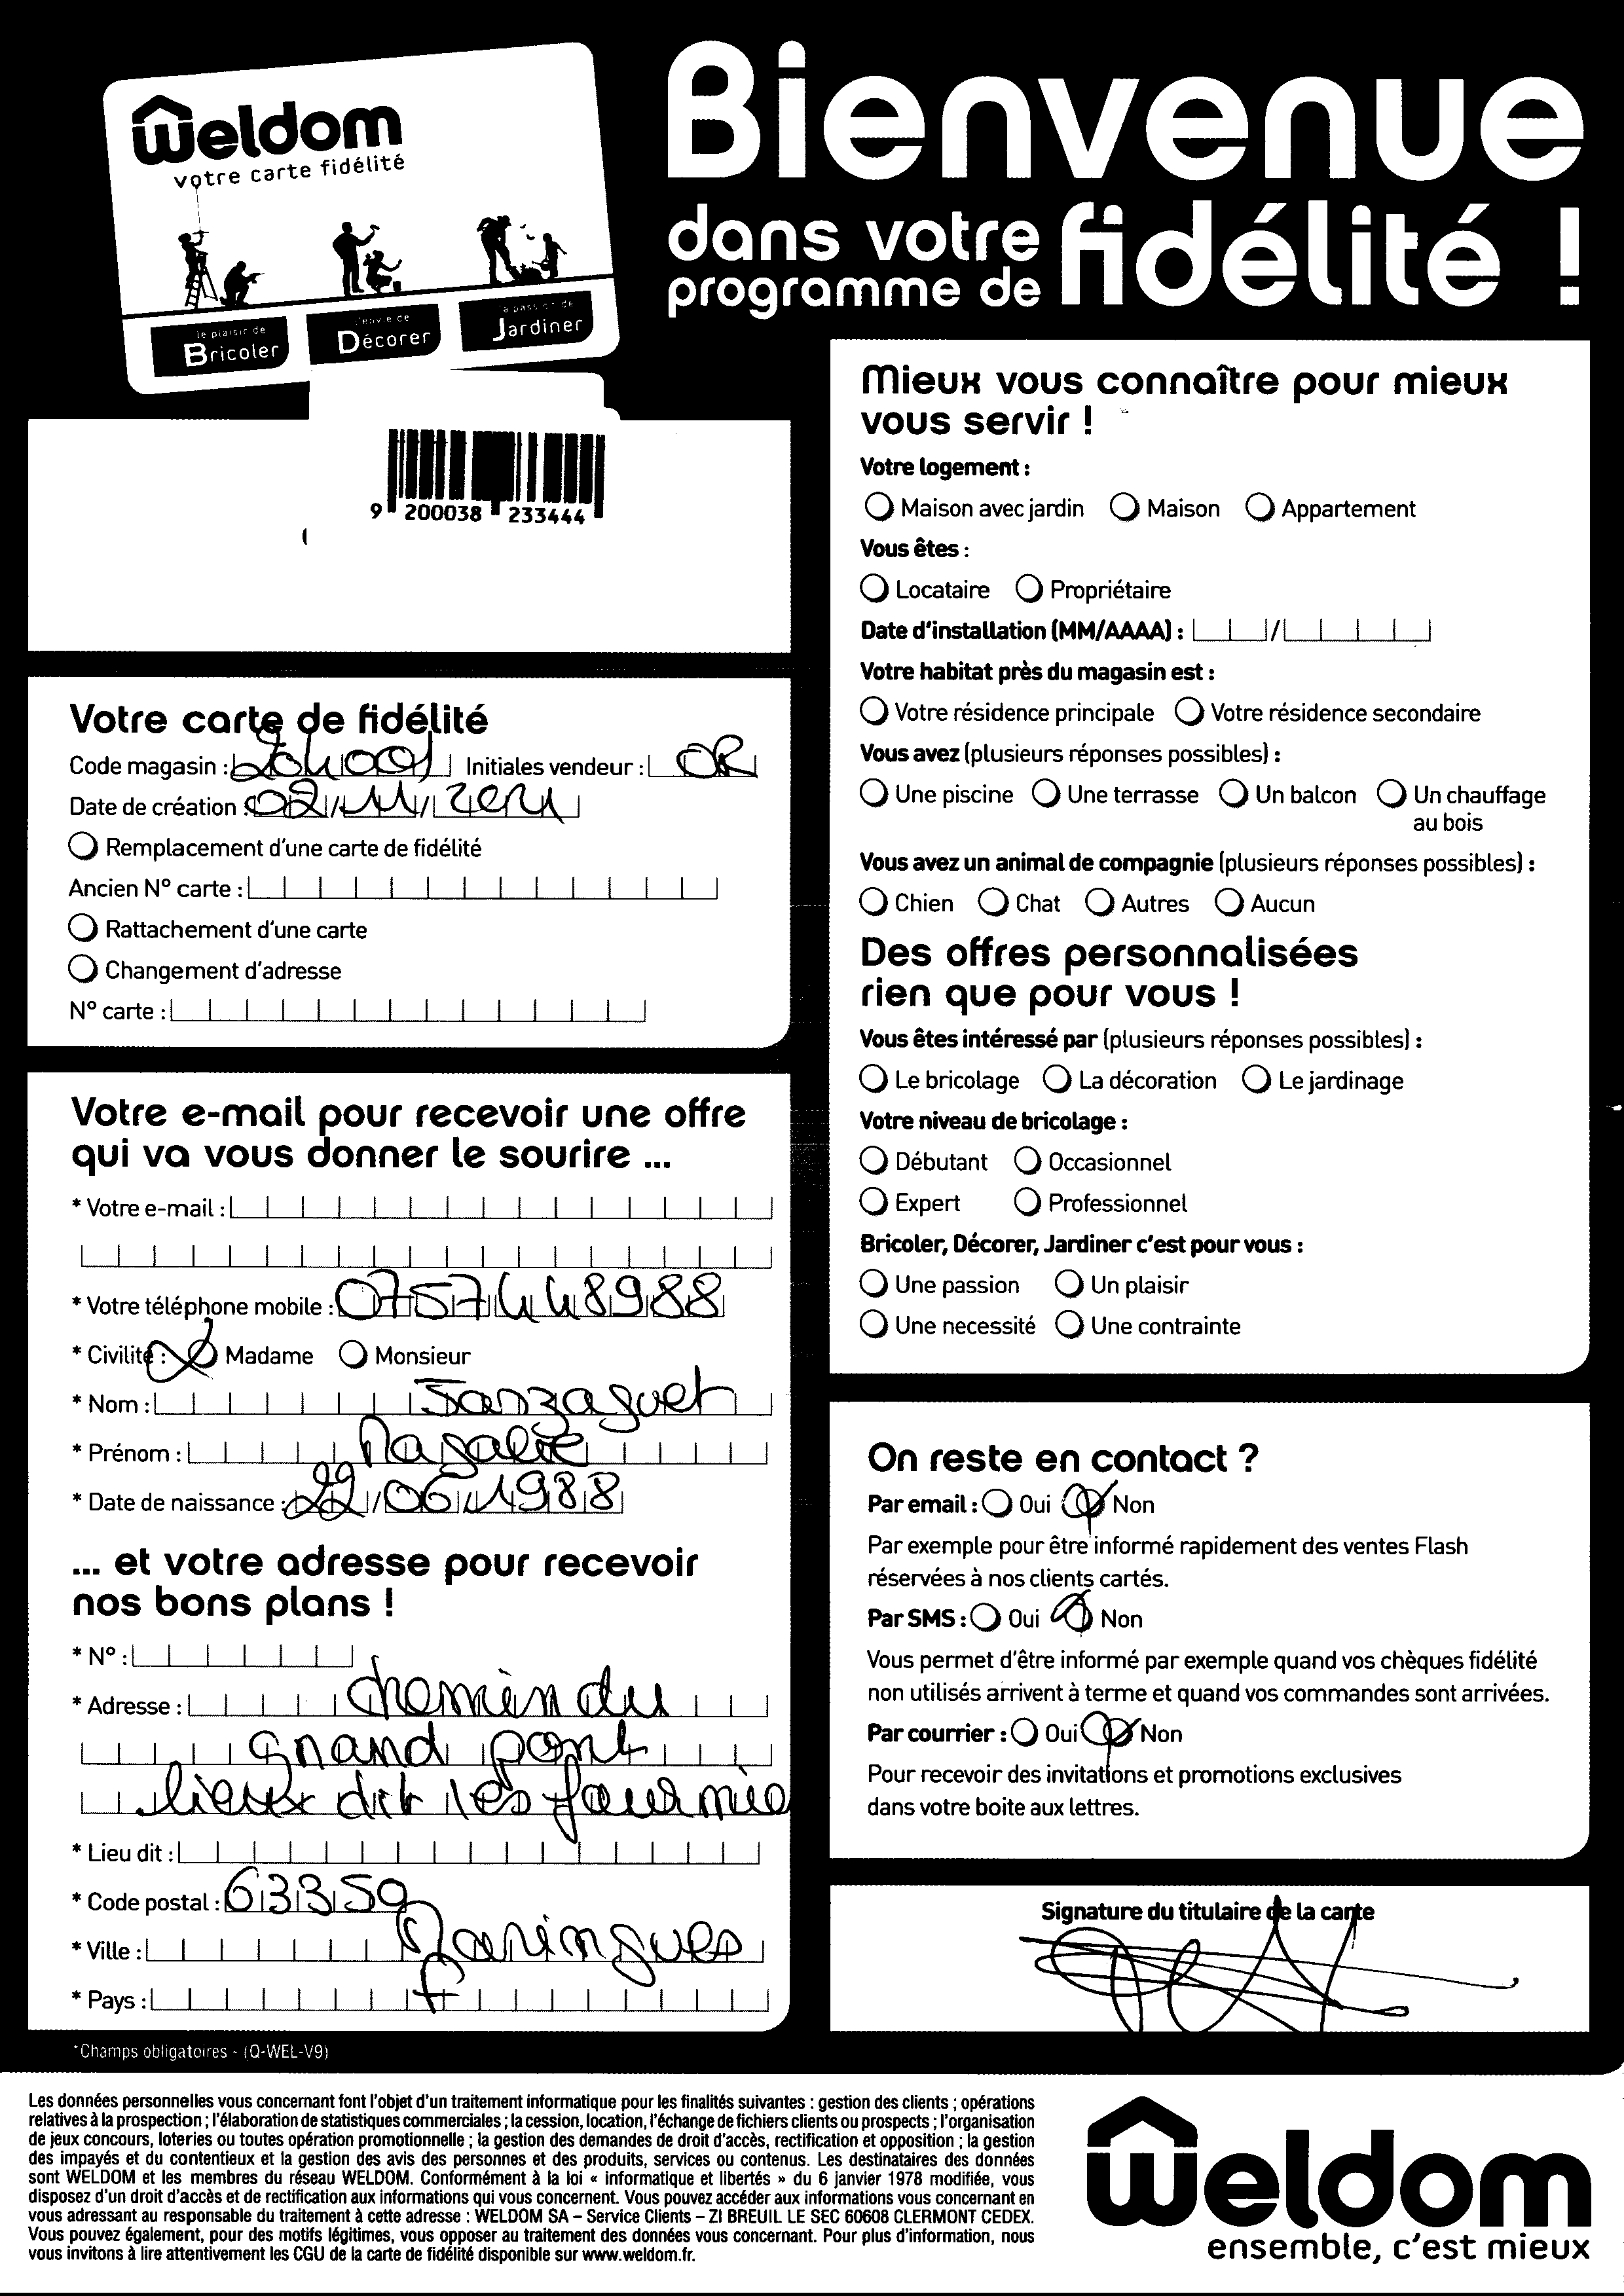 weldom
votre carte fidélité
le plaisir de
Bricoler
l'envie de
Décorer
la passion de
Jardiner
Bienvenue
dans votre
programme de
fidélité !
9 200038 233444
Votre carte de fidélité
Code magasin : Initiales vendeur : OR
Date de création : 02/11/2021
Remplacement d'une carte de fidélité
Ancien N° carte :
Rattachement d'une carte
Changement d'adresse
N° carte :
Votre e-mail pour recevoir une offre
qui va vous donner le sourire ...
* Votre e-mail :
* Votre téléphone mobile : 0757448988
* Civilité : Madame Monsieur
* Nom : Sanzaguet
* Prénom : Magalie
* Date de naissance : 22/06/1988
... et votre adresse pour recevoir
nos bons plans !
* N° :
* Adresse : chemin du
grand pont
lieux dit les fourmie
* Lieu dit :
* Code postal : 63350
* Ville : Maringues
* Pays : F
*Champs obligatoires - (Q-WEL-V9)
Mieux vous connaître pour mieux
vous servir !
Votre logement :
Maison avec jardin Maison Appartement
Vous êtes :
Locataire Propriétaire
Date d'installation (MM/AAAA) : /
Votre habitat près du magasin est :
Votre résidence principale Votre résidence secondaire
Vous avez (plusieurs réponses possibles) :
Une piscine Une terrasse Un balcon Un chauffage
au bois
Vous avez un animal de compagnie (plusieurs réponses possibles) :
Chien Chat Autres Aucun
Des offres personnalisées
rien que pour vous !
Vous êtes intéressé par (plusieurs réponses possibles) :
Le bricolage La décoration Le jardinage
Votre niveau de bricolage :
Débutant Occasionnel
Expert Professionnel
Bricoler, Décorer, Jardiner c'est pour vous :
Une passion Un plaisir
Une necessité Une contrainte
On reste en contact ?
Par email : Oui Non
Par exemple pour être informé rapidement des ventes Flash
réservées à nos clients cartés.
Par SMS : Oui Non
Vous permet d'être informé par exemple quand vos chèques fidélité
non utilisés arrivent à terme et quand vos commandes sont arrivées.
Par courrier : Oui Non
Pour recevoir des invitations et promotions exclusives
dans votre boite aux lettres.
Signature du titulaire de la carte
Les données personnelles vous concernant font l'objet d'un traitement informatique pour les finalités suivantes : gestion des clients ; opérations
relatives à la prospection ; l'élaboration de statistiques commerciales ; la cession, location, l'échange de fichiers clients ou prospects ; l'organisation
de jeux concours, loteries ou toutes opération promotionnelle ; la gestion des demandes de droit d'accès, rectification et opposition ; la gestion
des impayés et du contentieux et la gestion des avis des personnes et des produits, services ou contenus. Les destinataires des données
sont WELDOM et les membres du réseau WELDOM. Conformément à la loi « informatique et libertés » du 6 janvier 1978 modifiée, vous
disposez d'un droit d'accès et de rectification aux informations qui vous concernent. Vous pouvez accéder aux informations vous concernant en
vous adressant au responsable du traitement à cette adresse : WELDOM SA – Service Clients – ZI BREUIL LE SEC 60608 CLERMONT CEDEX.
Vous pouvez également, pour des motifs légitimes, vous opposer au traitement des données vous concernant. Pour plus d'information, nous
vous invitons à lire attentivement les CGU de la carte de fidélité disponible sur www.weldom.fr.
weldom
ensemble, c'est mieux